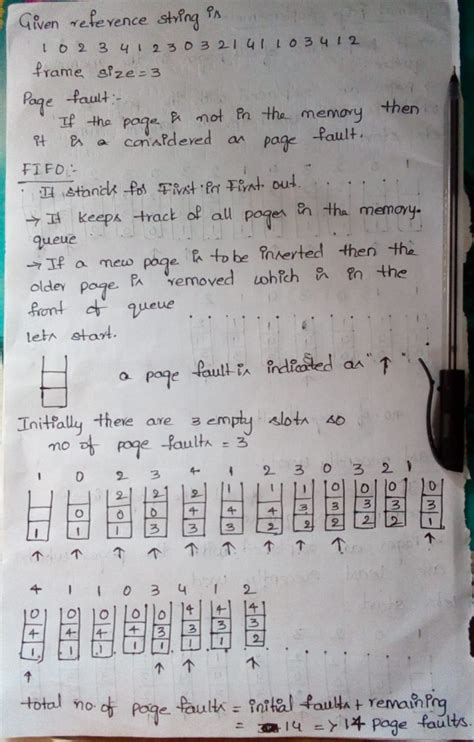 Given reference string is
1 0 2 3 4 1 2 3 0 3 2 1 4 1 1 0 3 4 1 2
frame size = 3
Page fault:-
If the page is not in the memory then
it is a considered as page fault.
FIFO:-
It stands for First in First out.
→ It keeps track of all pages in the memory
queue
→ If a new page is to be inserted then the
older page is removed which is in the
front of queue
lets start.
a page fault is indicated as "↑"
Initially there are 3 empty slots so
no of page faults = 3
1 0 2 3 4 1 2 3 0 3 2 1
2 2 2 1 1 1 0 0 0 0
0 0 0 4 4 4 3 3 3 3 3
1 1 1 3 3 3 2 2 2 2 2 1
↑ ↑ ↑ ↑ ↑ ↑ ↑ ↑ ↑ ↑
4 1 1 0 3 4 1 2
0 0 0 0 0 4 4 4
4 4 4 4 3 3 3 3
1 1 1 1 1 1 1 2
↑ ↑ ↑ ↑
total no. of page faults = initial faults + remaining
= 14 => 14 page faults.